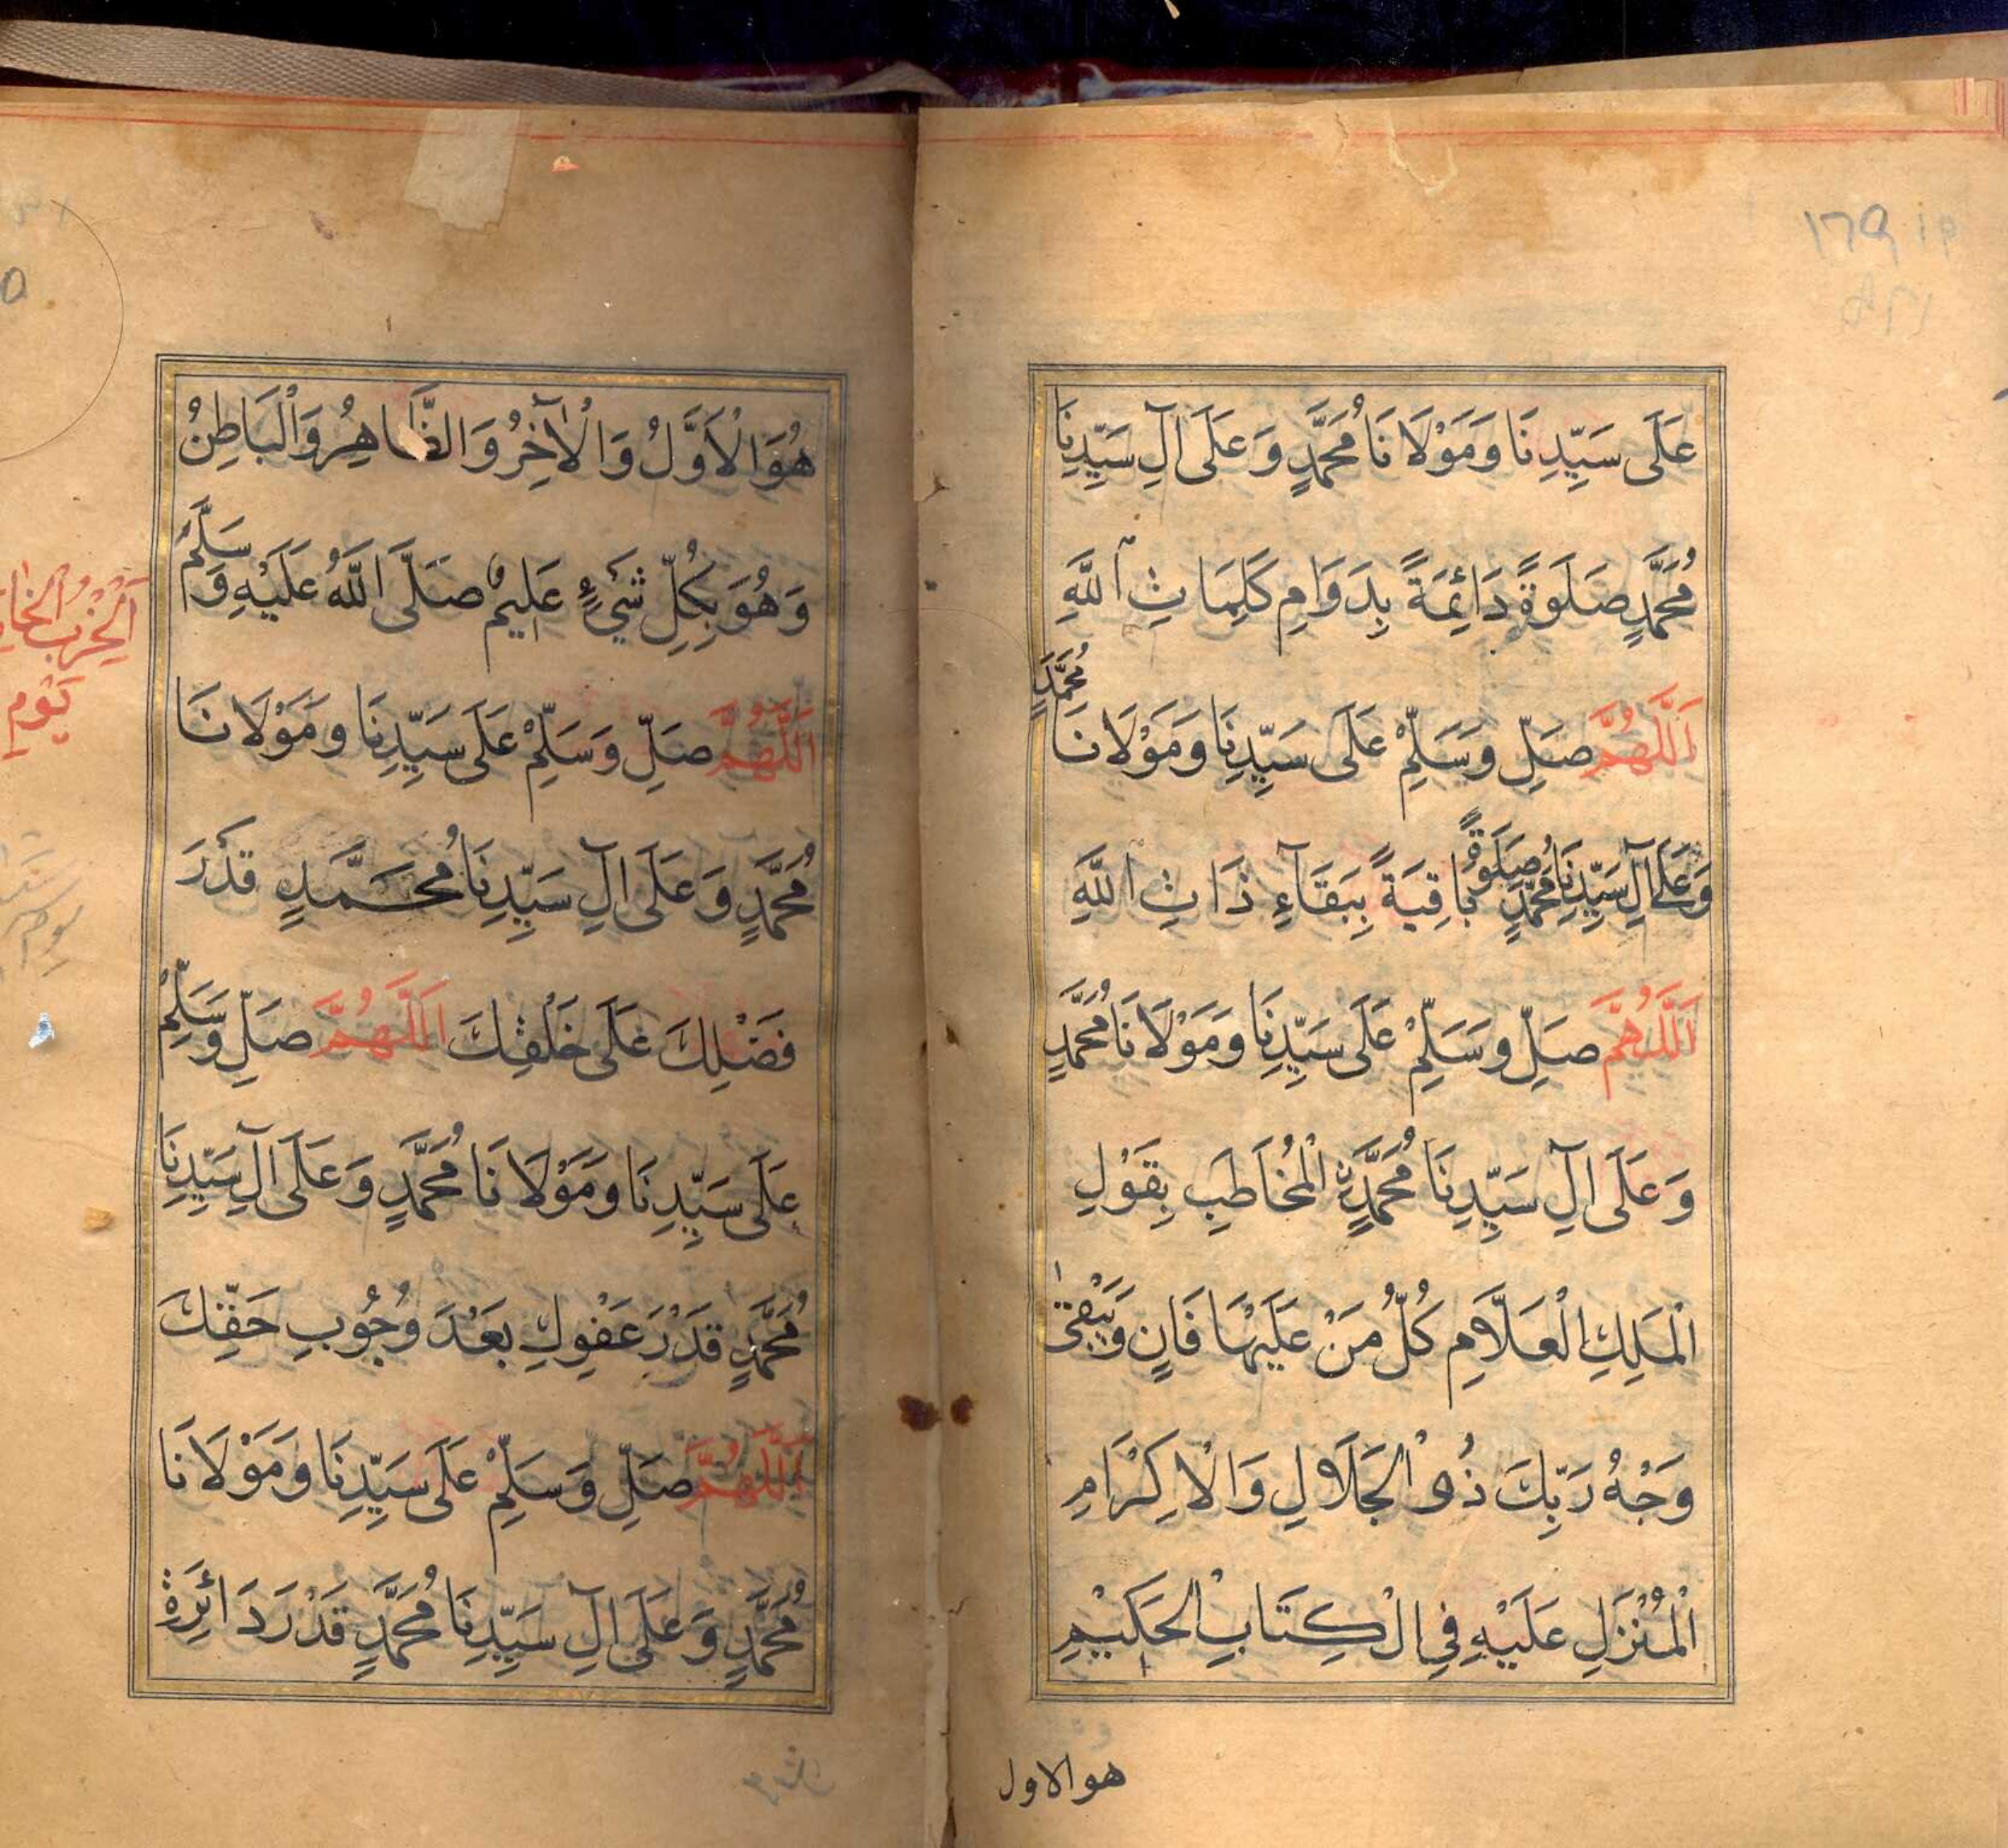 عَلَى سَيِّدِنَا وَمَوْلَانَا مُحَمَّدٍ وَعَلَى اٰلِ سَيِّدِنَا
مُحَمَّدٍ صَلَوةً دَائِمَةً بِدَوَامِ كَلِمَاتِ اللّٰهِ
اَللّٰهُمَّ صَلِّ وَسَلِّمْ عَلَى سَيِّدِنَا وَمَوْلَانَا مُحَمَّدٍ
وَعَلَى اٰلِ سَيِّدِنَا مُحَمَّدٍ صَلَوةً بَاقِيَةً بِبَقَآءِ ذَاتِ اللّٰهِ
اَللّٰهُمَّ صَلِّ وَسَلِّمْ عَلَى سَيِّدِنَا وَمَوْلَانَا مُحَمَّدٍ
وَعَلَى اٰلِ سَيِّدِنَا مُحَمَّدٍ الْمُخَاطَبِ بِقَوْلِ
الْمَلِكِ الْعَلَّامِ كُلُّ مَنْ عَلَيْهَا فَانٍ وَيَبْقٰى
وَجْهُ رَبِّكَ ذُو الْجَلَالِ وَالْاِكْرَامِ
الْمُنْزَلِ عَلَيْهِ فِي الْكِتَابِ الْحَكِيْمِ
هو الاول
هُوَ الْاَوَّلُ وَالْاٰخِرُ وَالظَّاهِرُ وَالْبَاطِنُ
وَهُوَ بِكُلِّ شَيْءٍ عَلِيمٌ صَلَّى اللّٰهُ عَلَيْهِ وَسَلَّمَ
اَللّٰهُمَّ صَلِّ وَسَلِّمْ عَلَى سَيِّدِنَا وَمَوْلَانَا
مُحَمَّدٍ وَعَلَى اٰلِ سَيِّدِنَا مُحَمَّدٍ قَدْرَ
فَضْلِكَ عَلَى خَلْقِكَ اَللّٰهُمَّ صَلِّ وَسَلِّمْ
عَلَى سَيِّدِنَا وَمَوْلَانَا مُحَمَّدٍ وَعَلَى اٰلِ سَيِّدِنَا
مُحَمَّدٍ قَدْرَ عَفْوِكَ بَعْدَ وُجُوْبِ حَقِّكَ
اَللّٰهُمَّ صَلِّ وَسَلِّمْ عَلَى سَيِّدِنَا وَمَوْلَانَا
مُحَمَّدٍ وَعَلَى اٰلِ سَيِّدِنَا مُحَمَّدٍ قَدْرَ دَائِرَةِ
اَلْحِزْبُ
يَوْمِ